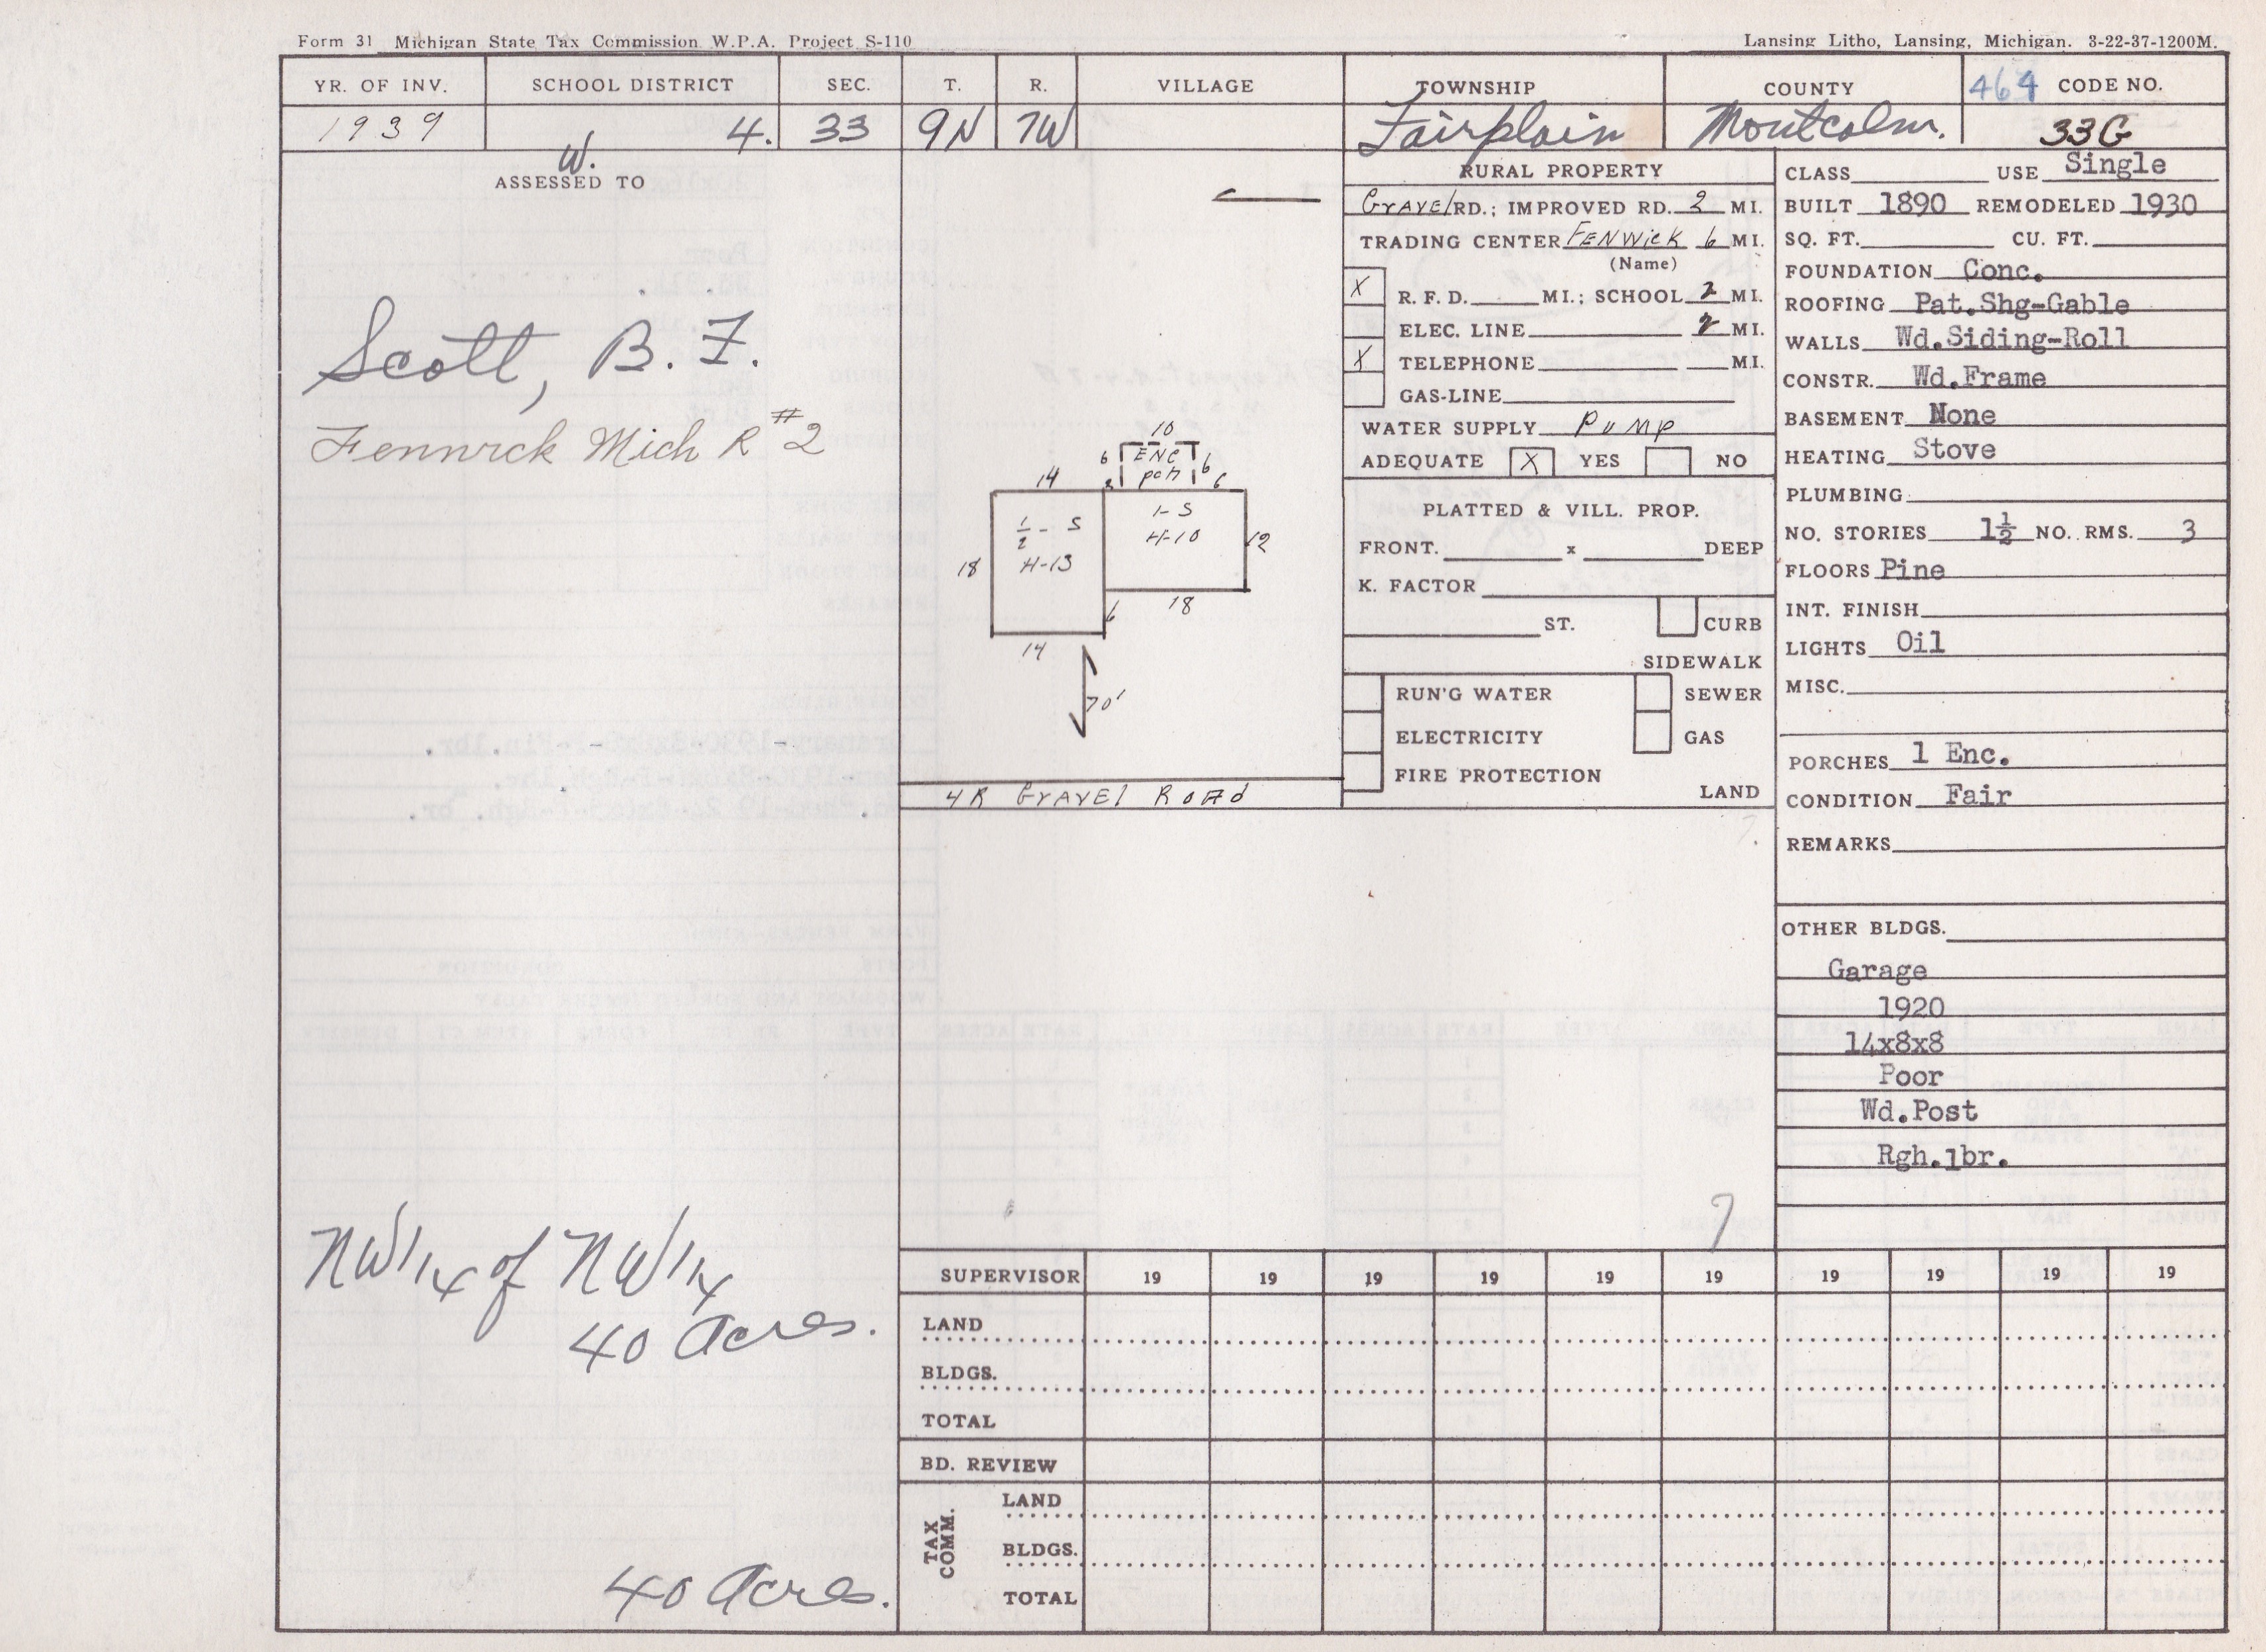 Form 31 Michigan State Tax Commission W.P.A. Project S-110
Lansing Litho, Lansing, Michigan. 3-22-37-1200M.
YR. OF INV. SCHOOL DISTRICT SEC. T. R. VILLAGE TOWNSHIP COUNTY 464 CODE NO.
1939 4. 33 9N 7W Fairplain Montcalm. 33G
W.
ASSESSED TO
Scott, B. F.
Fenwick Mich R #2
NW1/4 of NW1/4
40 Acres.
40 Acres.
10
6 ENC 6
pch
14 2 6
1/2 - S
H-13
1-S
H-10
12
18
18
6
14
70'
4R GRAVEL ROAD
RURAL PROPERTY
GRAVEL RD.; IMPROVED RD. 2 MI.
TRADING CENTER FENWICK 6 MI.
(Name)
X R. F. D. MI.; SCHOOL 2 MI.
ELEC. LINE 2 MI.
X TELEPHONE MI.
GAS-LINE
WATER SUPPLY PUMP
ADEQUATE X YES NO
PLATTED & VILL. PROP.
FRONT. x DEEP
K. FACTOR
ST. CURB
SIDEWALK
RUN'G WATER SEWER
ELECTRICITY GAS
FIRE PROTECTION
LAND
CLASS USE Single
BUILT 1890 REMODELED 1930
SQ. FT. CU. FT.
FOUNDATION Conc.
ROOFING Pat.Shg-Gable
WALLS Wd.Siding-Roll
CONSTR. Wd.Frame
BASEMENT None
HEATING Stove
PLUMBING
NO. STORIES 1½ NO. RMS. 3
FLOORS Pine
INT. FINISH
LIGHTS Oil
MISC.
PORCHES 1 Enc.
CONDITION Fair
REMARKS
OTHER BLDGS.
Garage
1920
14x8x8
Poor
Wd.Post
Rgh.lbr.
7
SUPERVISOR 19 19 19 19 19 19 19 19 19 19
LAND
BLDGS.
TOTAL
BD. REVIEW
TAX COMM.
LAND
BLDGS.
TOTAL